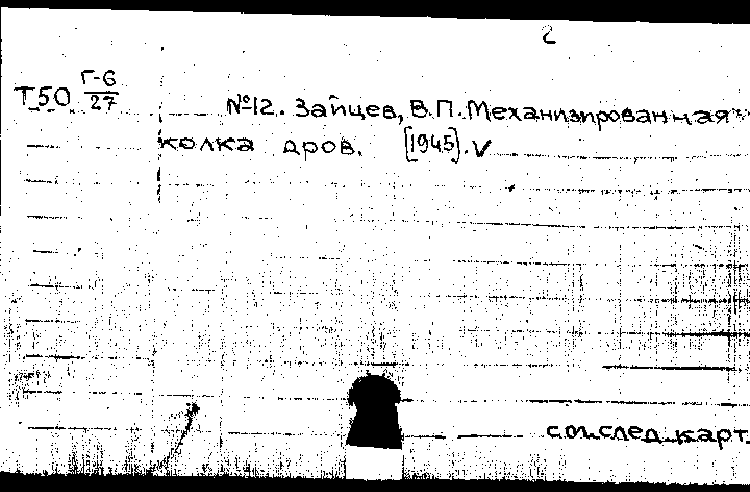 2
Т50 Г-6/27
№12. Зайцев, В.П. Механизированная
колка дров. [1945]. V
см.след.карт.